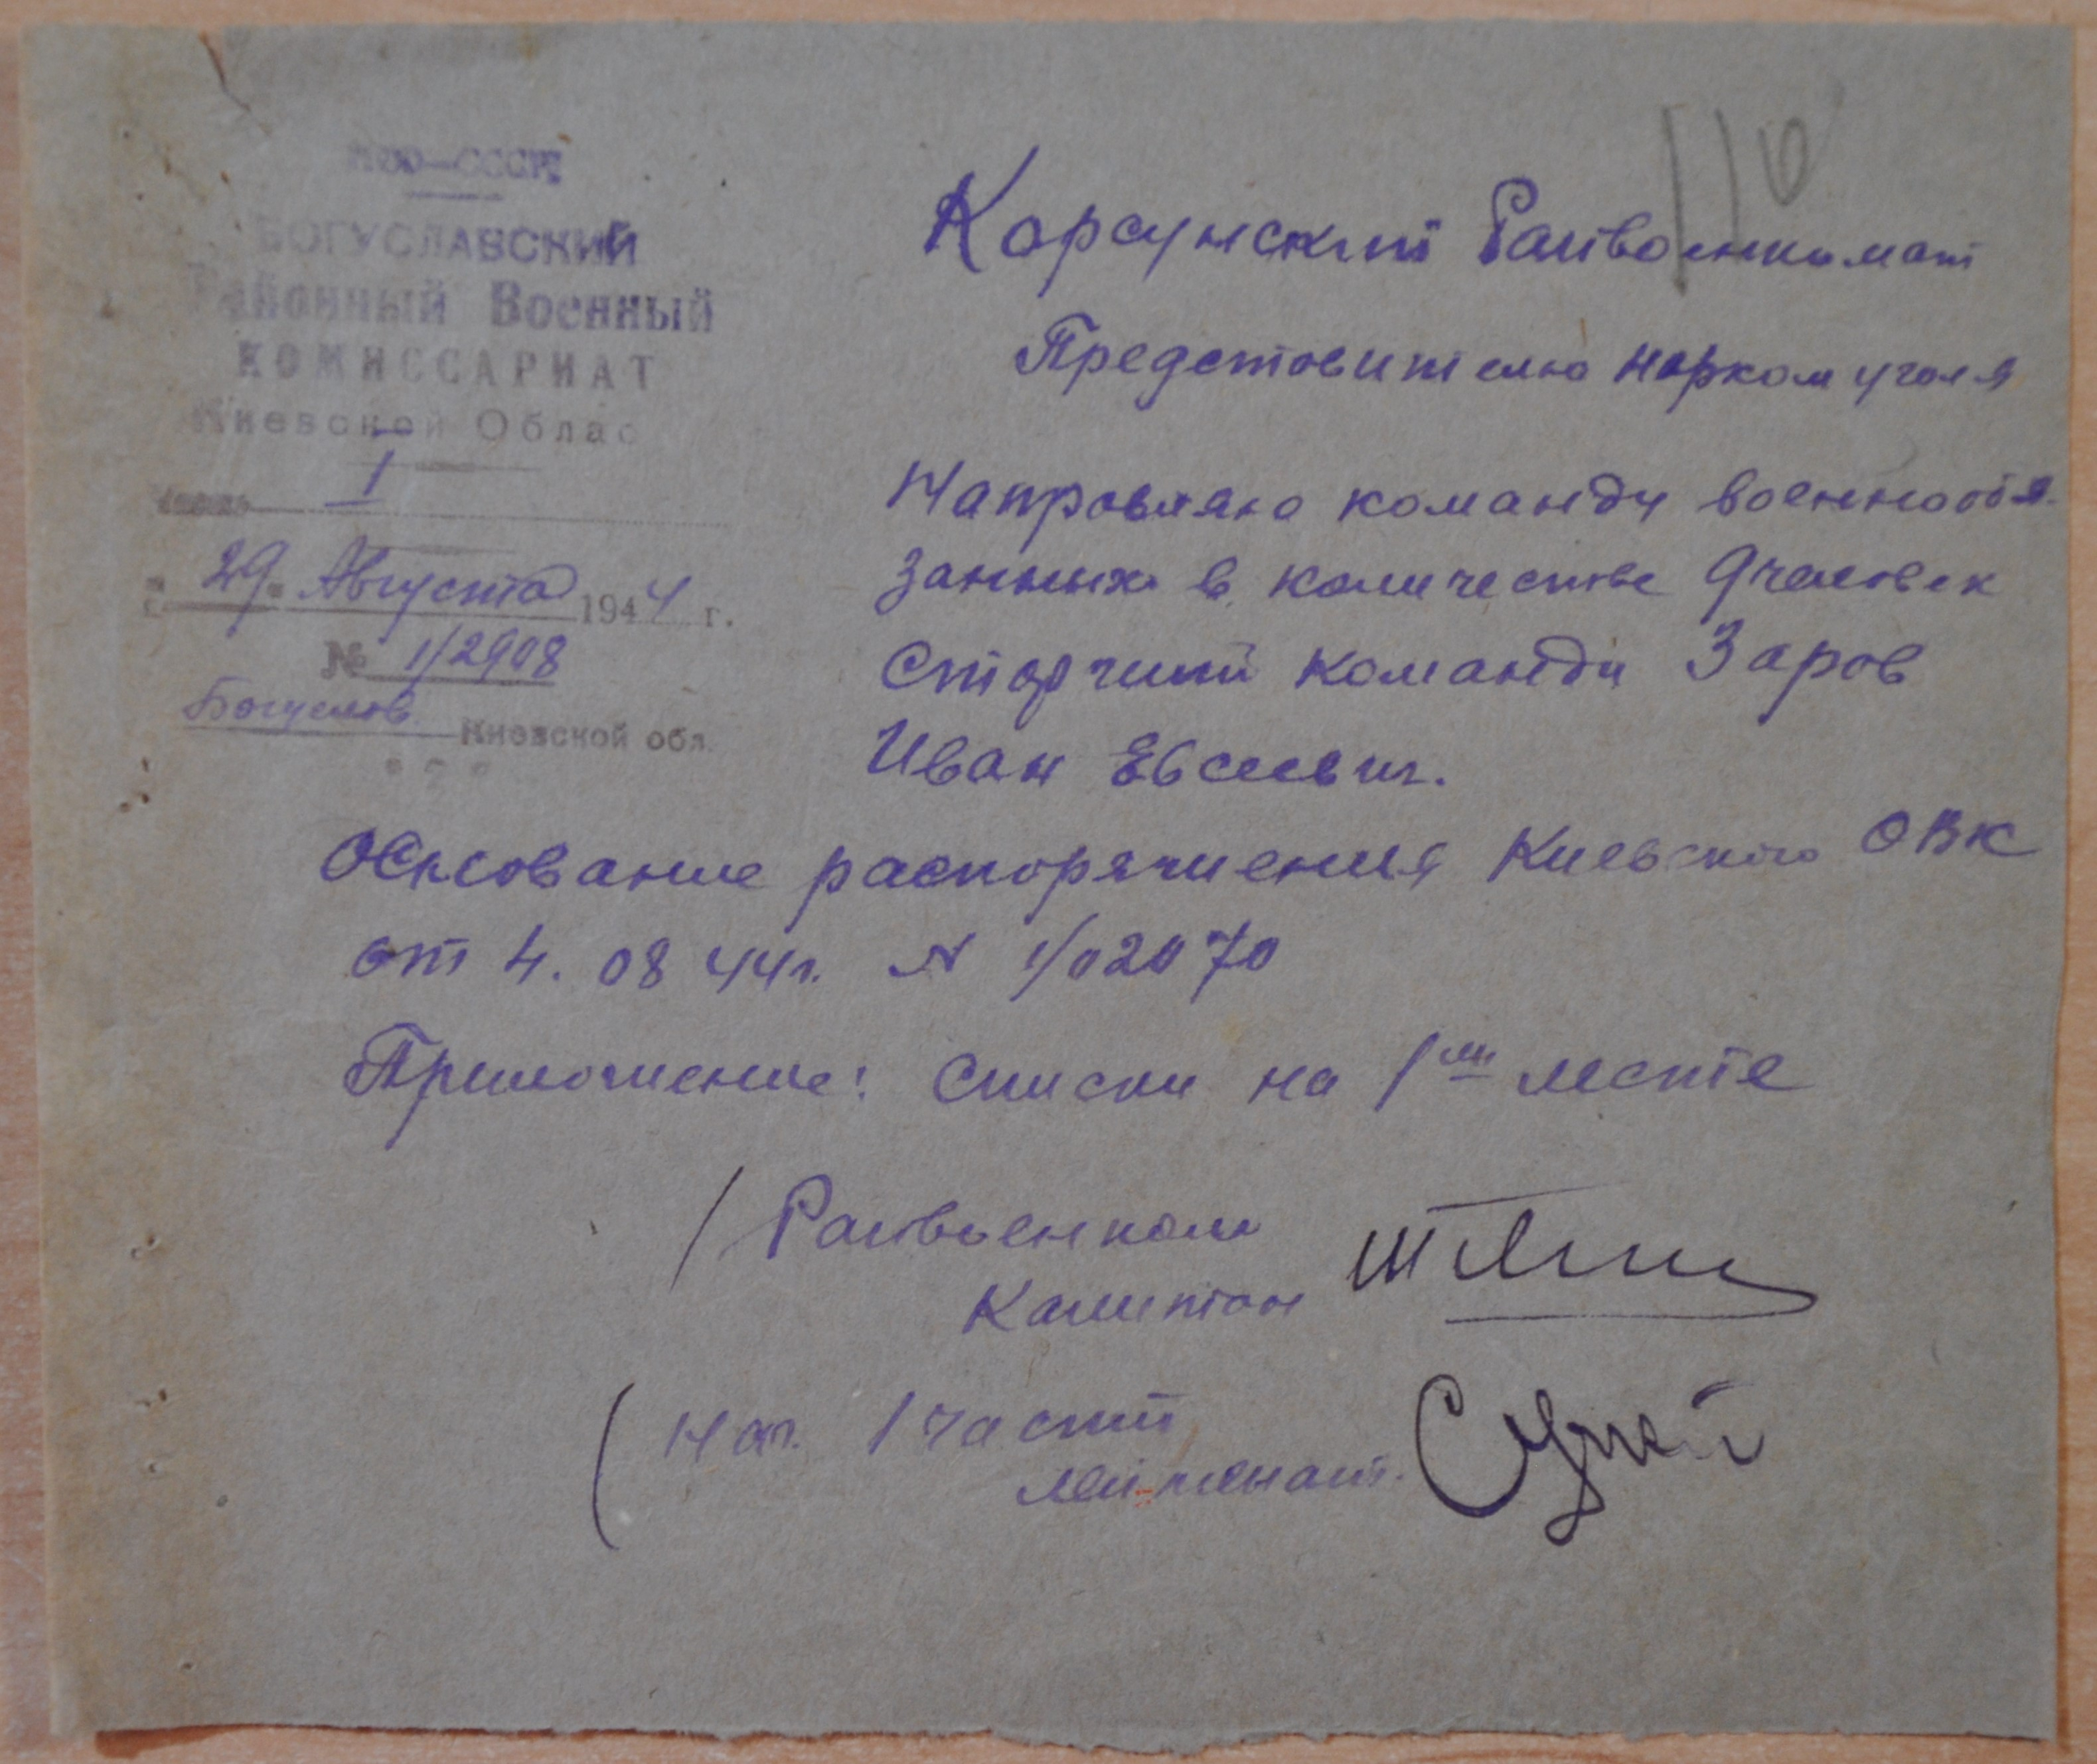 116
НКО–СССР
БОГУСЛАВСКИЙ
Районный Военный
КОМИССАРИАТ
Киевской Облас
Часть I
"29" Августа 1944 г.
№ 1/2908
Богуслав Киевской обл.
Корсунский Райвоенкомат
Представителю наркомуголя
Направляю команду военнообя-
занных в количестве 9 человек
Старший команди Заров
Иван Евсеевич.
Основание распоряжения Киевского ОВК
от 4. 08 44г. N 1/02070
Приложение: Списки на 1ом месте
/ Райвоенком
Капитан
( Нач. 1 части
Лейтенант.